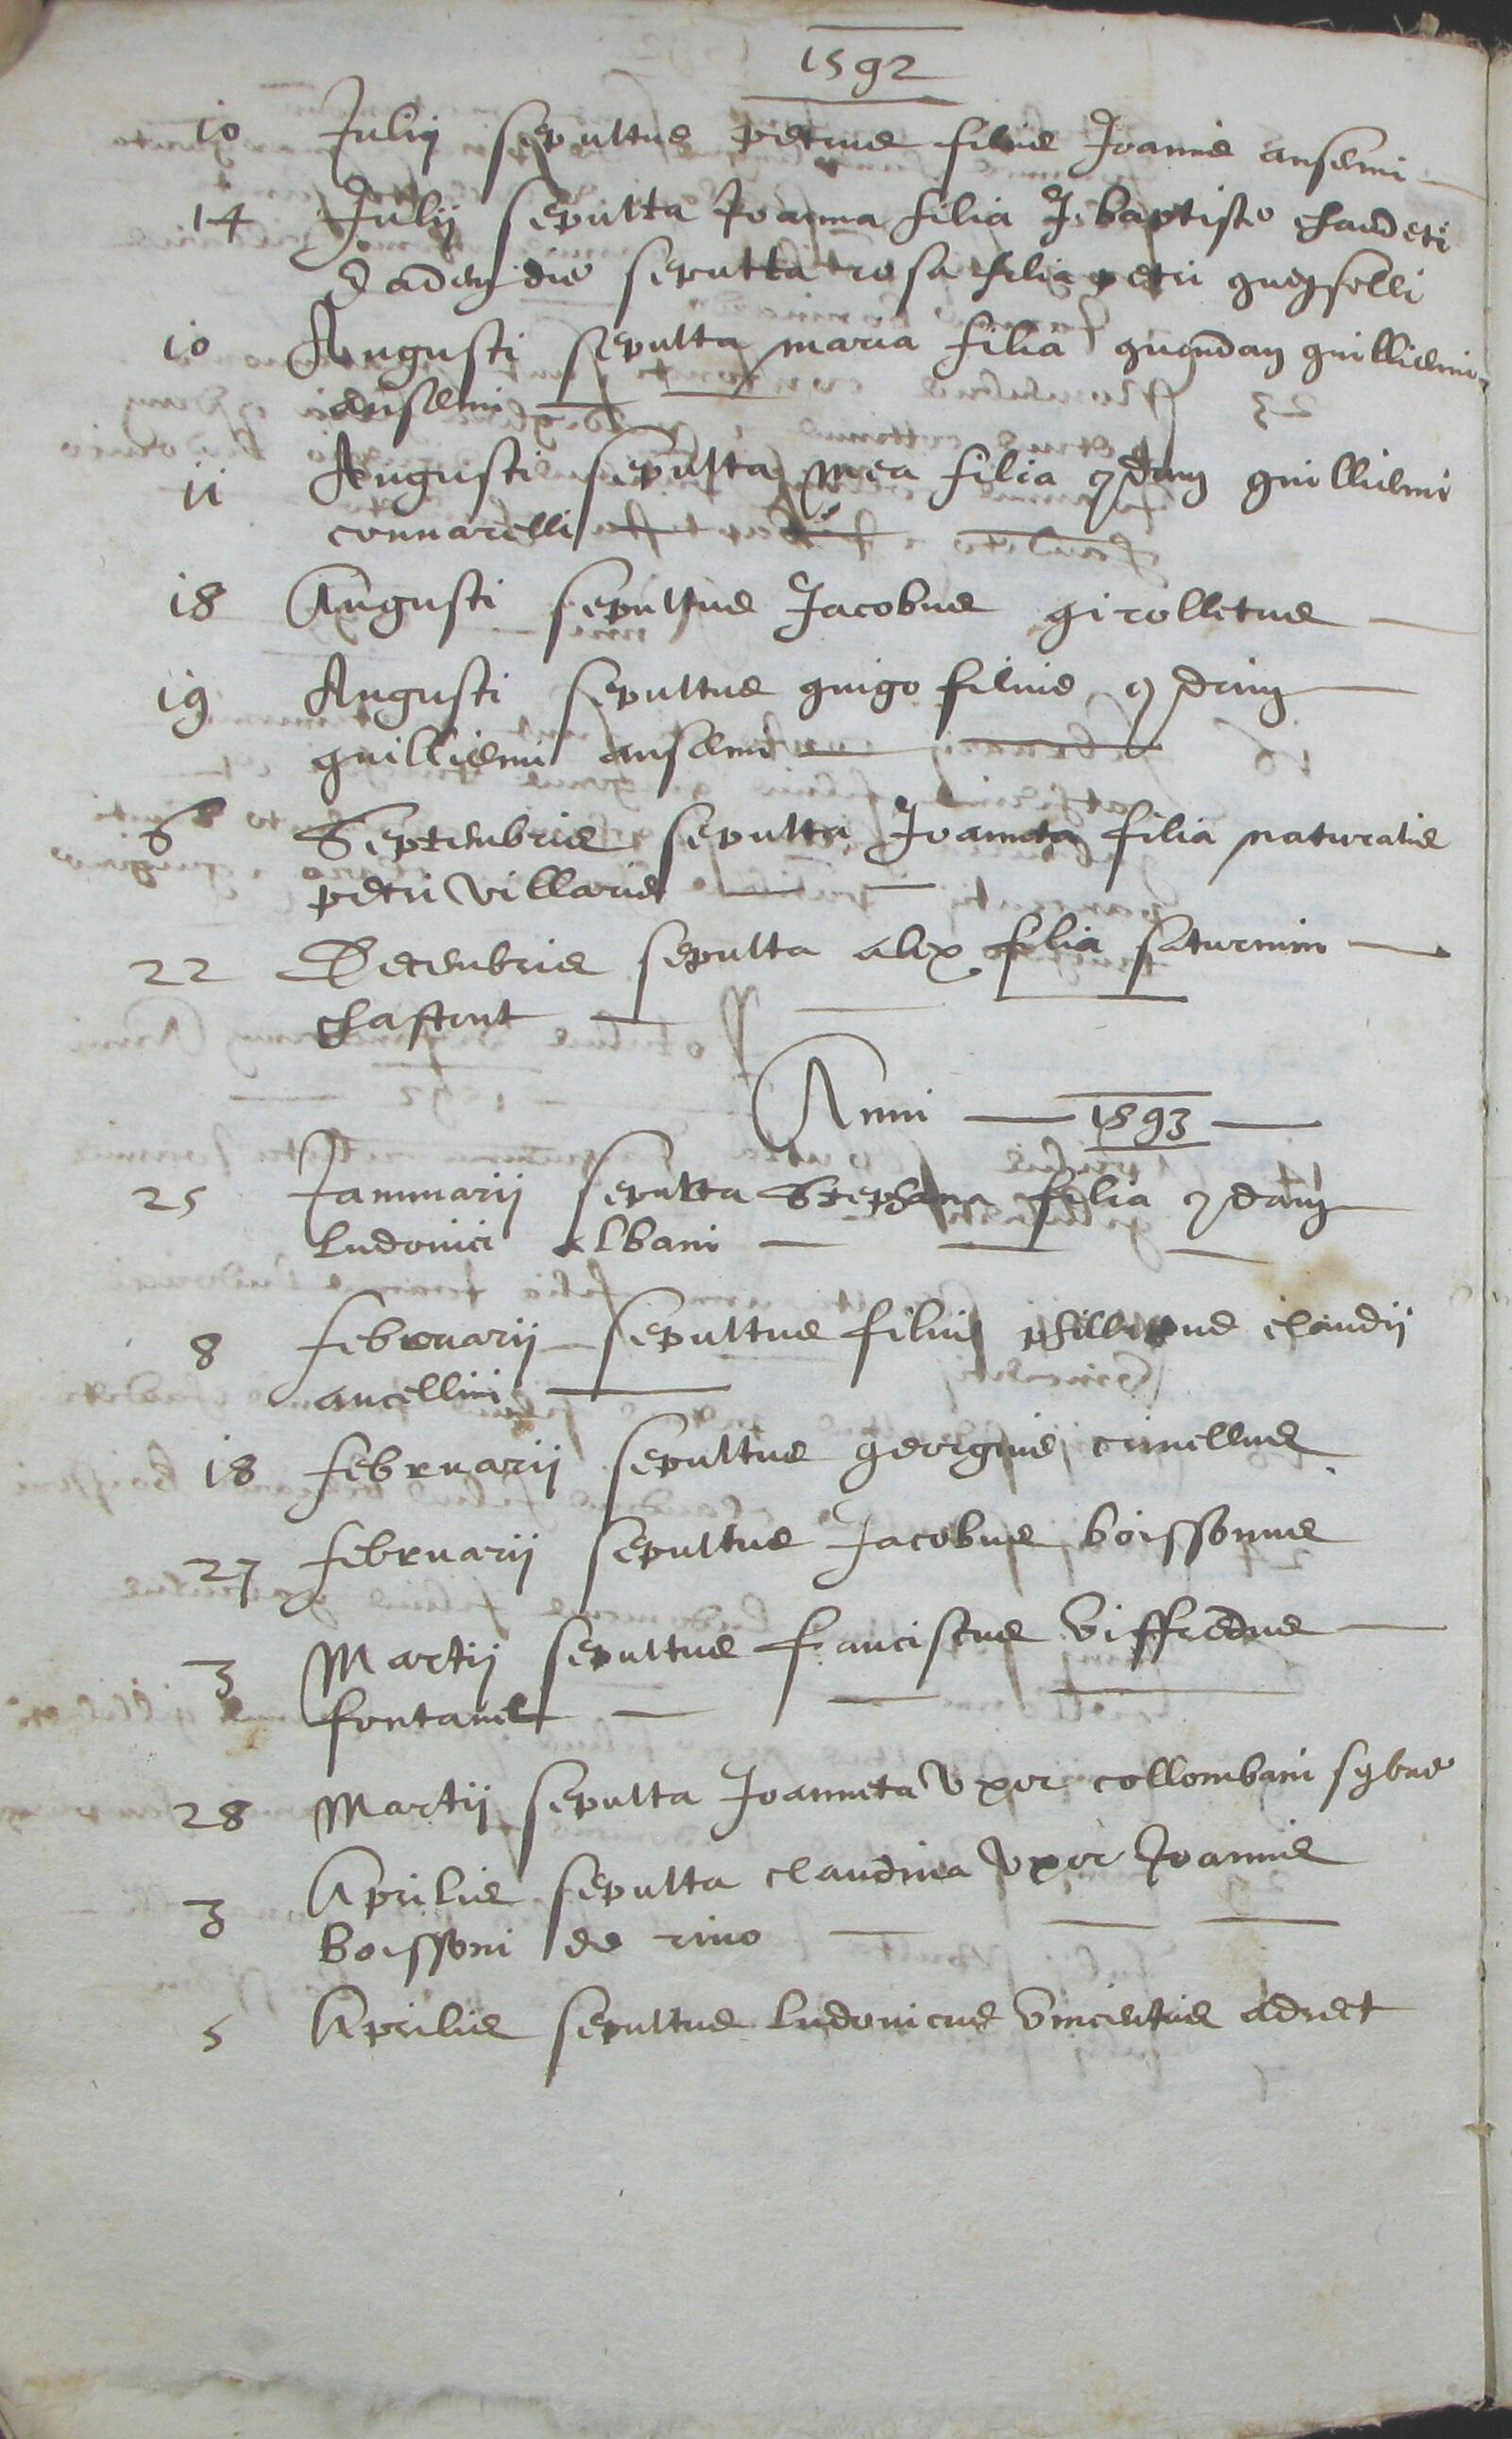 1592
10 Julii sepultus petrus filius Joannis anselmi
14 Julii sepulta Joanna filia J. baptiste chaudeti
Eadem die sepulta rosa filia petri
10 Augusti sepulta maria filia quondam guilliemi
anselmi
11 Augusti sepulta mea filia qdam guilliemi
connarelli
18 Augusti sepultus Jacobus girolletus
19 Augusti sepultus guigo filius qdam
guilliemi anselmi
6 Septembris sepulta Joanneta filia naturalis
petri villaris
22 Decembris sepulta alix filia saturnini
chastont
Anni 1593
25 Januarii sepulta Stephana filia qdam
ludovici albani
8 februarii sepultus filius phillipus claudii
ancellini
18 februarii sepultus georgius crivellus
27 februarii sepultus Jacobus boissonus
3 Martii sepultus franciscus viffredus
fontanel
28 Martii sepulta Joanneta vxor collombani sybue
3 Aprilis sepulta claudina vxor Joannis
boissoni de rivo
5 Aprilis sepultus ludovicus vincentius adrect